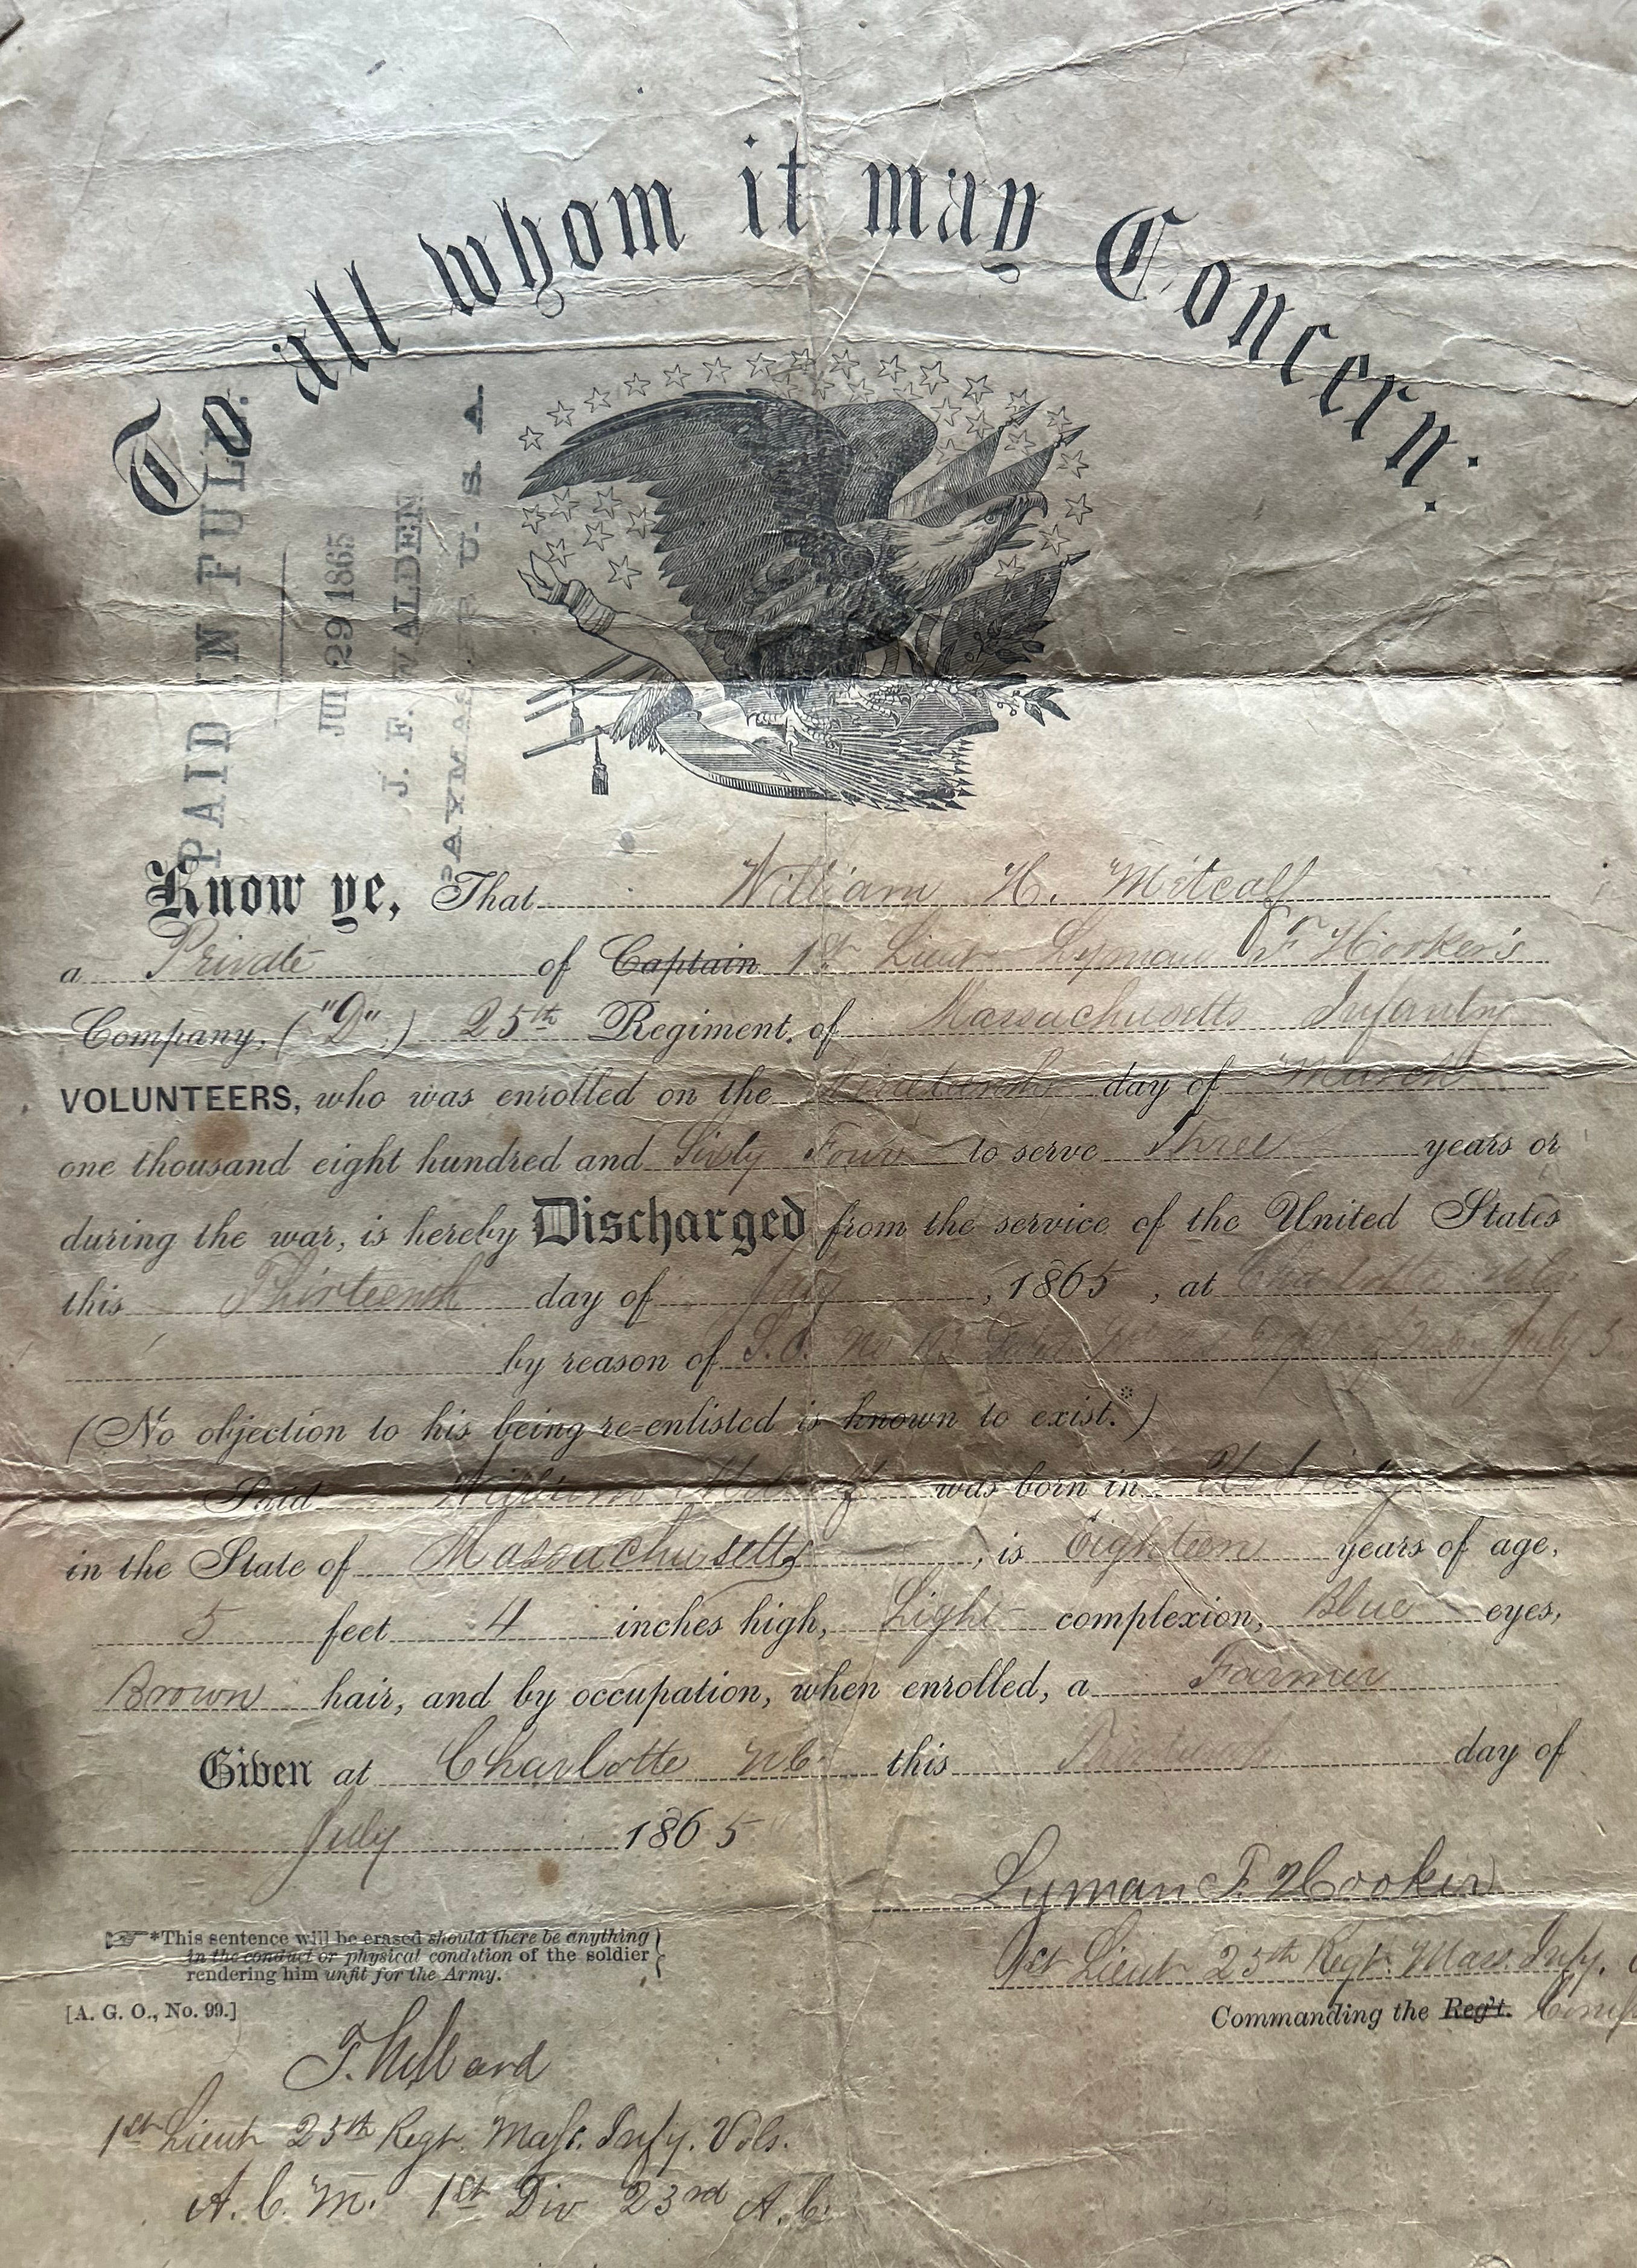 To all whom it may Concern:
PAID IN FULL.
JUL 29 1865
J. F. WALDEN
PAYMASTER U. S. A
Know ye, That William H. Metcalf
a Private of Captain 1st Lieut Lyman F Hooker's
Company, ("D",) 25th Regiment, of Massachusetts Infantry
VOLUNTEERS, who was enrolled on the day of March
one thousand eight hundred and Sixty Four to serve Three years or
during the war, is hereby Discharged from the service of the United States
this Thirteenth day of July, 1865, at Charlotte N.C.
by reason of S.O. No July 5
(No objection to his being re-enlisted is known to exist.*)
Said William Metcalf was born in Uxbridge
in the State of Massachusetts, is Eighteen years of age,
5 feet 4 inches high, Light complexion, Blue eyes,
Brown hair, and by occupation, when enrolled, a Farmer
Given at Charlotte NC this Thirteenth day of
July 1865
Lyman F. Hooker
1st Lieut 25th Regt. Mass. Infy.
Commanding the Reg't. Comp
*This sentence will be erased should there be anything
in the conduct or physical condition of the soldier
rendering him unfit for the Army.
[A. G. O., No. 99.]
1st Lieut 25th Regt. Mass. Infy. Vols.
A. C. M. 1st Div 23rd A. C.